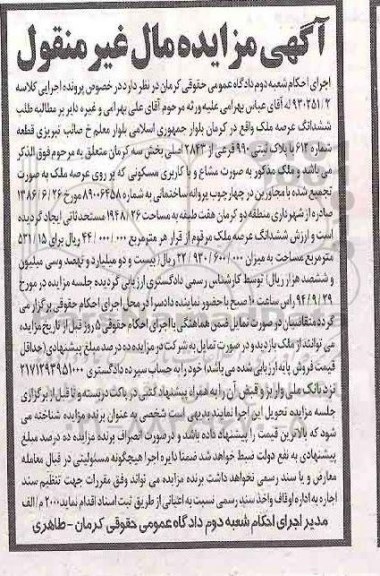 آگهی مزایده مال غیر منقول
اجرای احکام شعبه دوم دادگاه عمومی حقوقی کرمان در نظر دارد در خصوص پرونده اجرایی کلاسه
۹۳۰۲۵۱/۲ له آقای عباس بهرامی علیه ورثه مرحوم آقای علی بهرامی و غیره دایر بر مطالبه طلب
ششدانگ عرصه ملک واقع در کرمان بلوار جمهوری اسلامی بلوار معلم خ صائب تبریزی قطعه
شماره ۶۱۲ با پلاک ثبتی ۹۹۰ فرعی از ۲۸۴۳ اصلی بخش سه کرمان متعلق به مرحوم فوق الذکر
می باشد و ملک مذکور به صورت مشاع و با کاربری مسکونی که بر روی عرصه ملک به صورت
تجمیع شده با مجاورین در چهارچوب پروانه ساختمانی به شماره ۸۹۰۰۶۴۵۸ مورخ ۱۳۸۶/۶/۲۶
صادره از شهرداری منطقه دو کرمان هفت طبقه به مساحت ۱۹۴۸/۲۶ مستحدثاتی ایجاد گردیده
است و ارزش ششدانگ عرصه ملک مرقوم از قرار هر مترمربع ۴۴/۰۰۰/۰۰۰ ریال برای ۵۲۱/۱۵
مترمربع مساحت به میزان ۲۲/۹۳۰/۶۰۰/۰۰۰ ریال (بیست و دو میلیارد و نهصد وسی میلیون
و ششصد هزار ریال) توسط کارشناس رسمی دادگستری ارزیابی گردیده جلسه مزایده در مورخ
۹۴/۹/۲۹ راس ساعت ۱۰ صبح با حضور نماینده دادسرا در محل اجرای احکام حقوقی برگزار می
گردد متقاضیان در صورت تمایل ضمن هماهنگی با اجرای احکام حقوقی ۵ روز قبل از تاریخ مزایده
می توانند از ملک بازدید و در صورت تمایل به شرکت در مزایده ده درصد مبلغ پیشنهادی (حداقل
قیمت فروش پایه ارزیابی شده می باشد) خود را به حساب سپرده دادگستری ۲۱۷۱۲۹۳۹۵۱۰۰۰
نزد بانک ملی واریز و قبض آن را به همراه پیشنهاد کتبی در پاکت در بسته و تا قبل از برگزاری
جلسه مزایده تحویل این اجرا نمایند بدیهی است شخصی به عنوان برنده مزایده شناخته می
شود که بالاترین قیمت را پیشنهاد داده باشد و در صورت انصراف برنده مزایده ده درصد مبلغ
پیشنهادی به نفع دولت ضبط خواهد شد ضمنا دایره اجرا هیچگونه مسئولیتی در قبال معامله
معارض و یا سند رسمی نخواهد داشت برنده مزایده می تواند وفق مقررات جهت تنظیم سند
اجاره به اداره اوقاف واخذ سند رسمی نسبت به اعیانی از طریق ثبت اسناد اقدام نماید ۲۰۰۰ م الف
مدیر اجرای احکام شعبه دوم دادگاه عمومی حقوقی کرمان - طاهری